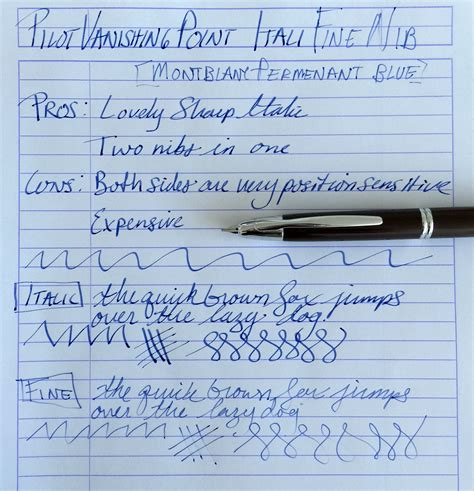 PILOT VANISHING POINT ITALI FINE NIB
[MONTBLANC PERMENANT BLUE]
PROS: Lovely Sharp Italic
Two nibs in one
CONS: Both sides are very position sensitive
Expensive
ITALIC the quick brown fox jumps
over the lazy dog
FINE the quick brown fox jumps
over the lazy dog